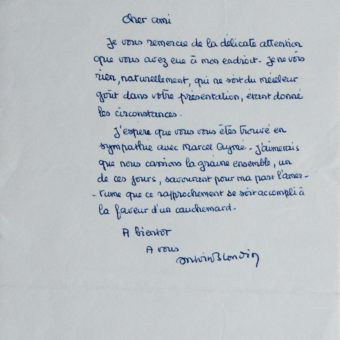 Cher ami
Je vous remercie de la délicate attention
que vous avez eue à mon endroit. Je ne vois
rien, naturellement, qui ne soit du meilleur
goût dans votre présentation, étant donné
les circonstances.
J'espère que vous vous êtes trouvé en
sympathie avec Marcel Aymé. J'aimerais
que nous cassions la graine ensemble, un
de ces jours, savourant pour ma part l'amer-
-tume que ce rapprochement se soit accompli à
la faveur d'un cauchemard.
A bientôt
A vous
Antoine Blondin